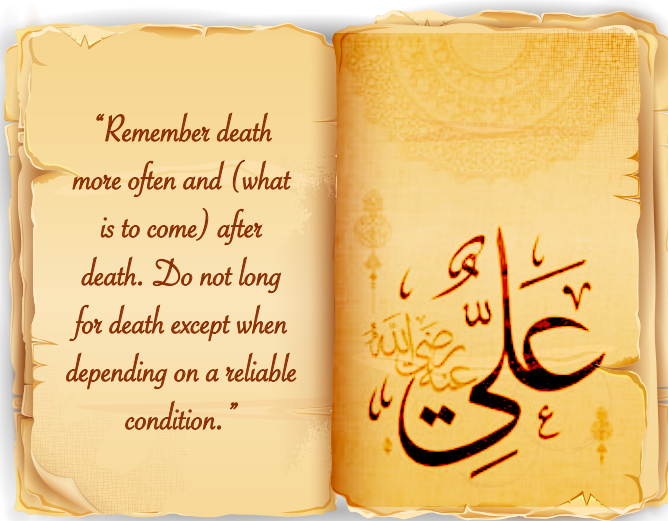 “Remember death
more often and (what
is to come) after
death. Do not long
for death except when
depending on a reliable
condition.”
عَلِيّ
رضي الله
عنه